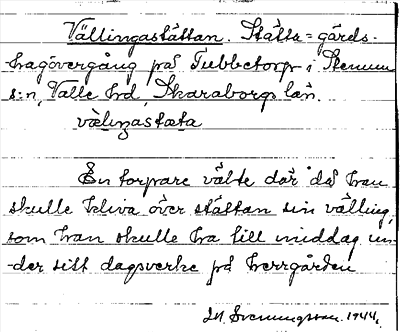 Vällingastättan. Stätta = gärds-
hagövergång på Tubbetorp i Stenum
s:n, Valle hd, Skaraborgs län.
vælıŋastæta
En torpare välte där då han
skulle kliva över stättan sin välling,
som han skulle ha till middag un-
-der sitt dagsverke på herrgården
Svenningsson. 1944.